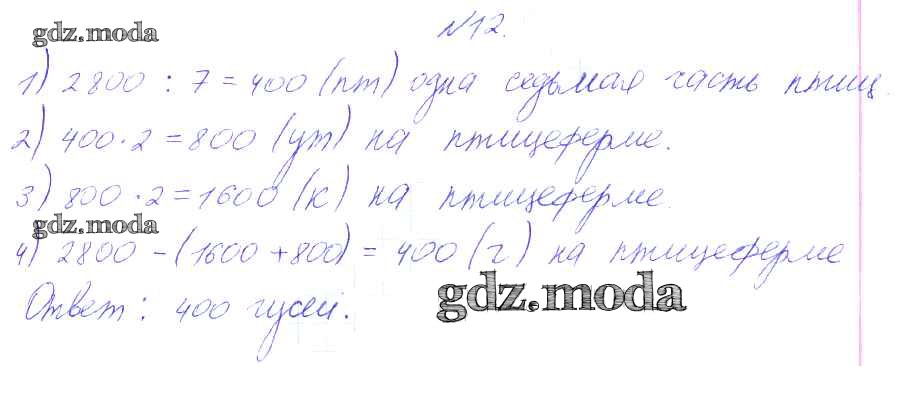 №12.
gdz.moda
1) 2800 : 7 = 400 (пт) одна седьмая часть птиц.
2) 400 · 2 = 800 (ут) на птицеферме.
3) 800 · 2 = 1600 (к) на птицеферме.
gdz.moda
4) 2800 - (1600 + 800) = 400 (г) на птицеферме
gdz.moda
Ответ: 400 гусей.